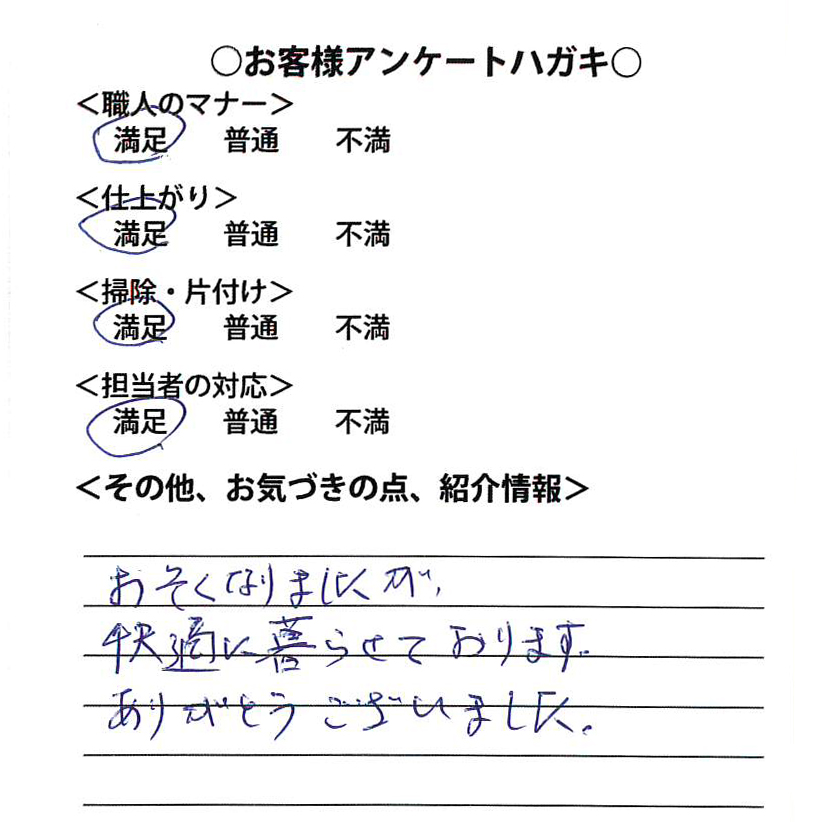 ○お客様アンケートハガキ○
＜職人のマナー＞
満足 普通 不満
＜仕上がり＞
満足 普通 不満
＜掃除・片付け＞
満足 普通 不満
＜担当者の対応＞
満足 普通 不満
＜その他、お気づきの点、紹介情報＞
おそくなりましたが、
快適に暮らせております。
ありがとうございました。